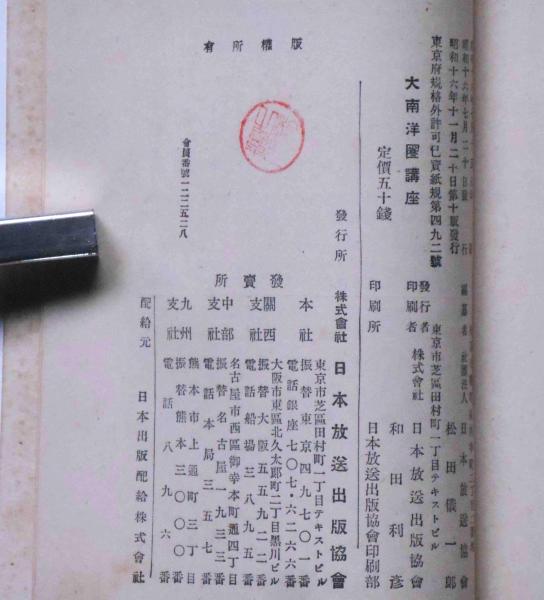 昭和十六年七月二十日發行
昭和十六年十一月二十日第十版發行
東京府規格外許可巳賣紙規第四九二號
大南洋圏講座
定價五十錢
編纂者 社團法人 日本放送協會
東京市芝區田村町一丁目テキストビル
發行者 松田儀一郎
株式會社 日本放送出版協會
印刷者 和田利彦
印刷所 日本放送出版協會印刷部
發行所 株式會社 日本放送出版協會
發賣所
本社 東京市芝區田村町一丁目テキストビル
振替東京四九七〇一番
電話銀座七〇七・六二六六番
關西支社 大阪市東區北久太郎町二丁目黒川ビル
振替大阪五五九二二番
電話船場三八九五番
中部支社 名古屋市西區御幸本町通四丁目
振替名古屋一九三三番
電話本局三五五七番
九州支社 熊本市上通町三丁目
振替熊本三〇〇〇番
電話八九六番
配給元 日本出版配給株式會社
版權所有
會員番號一二二五二八